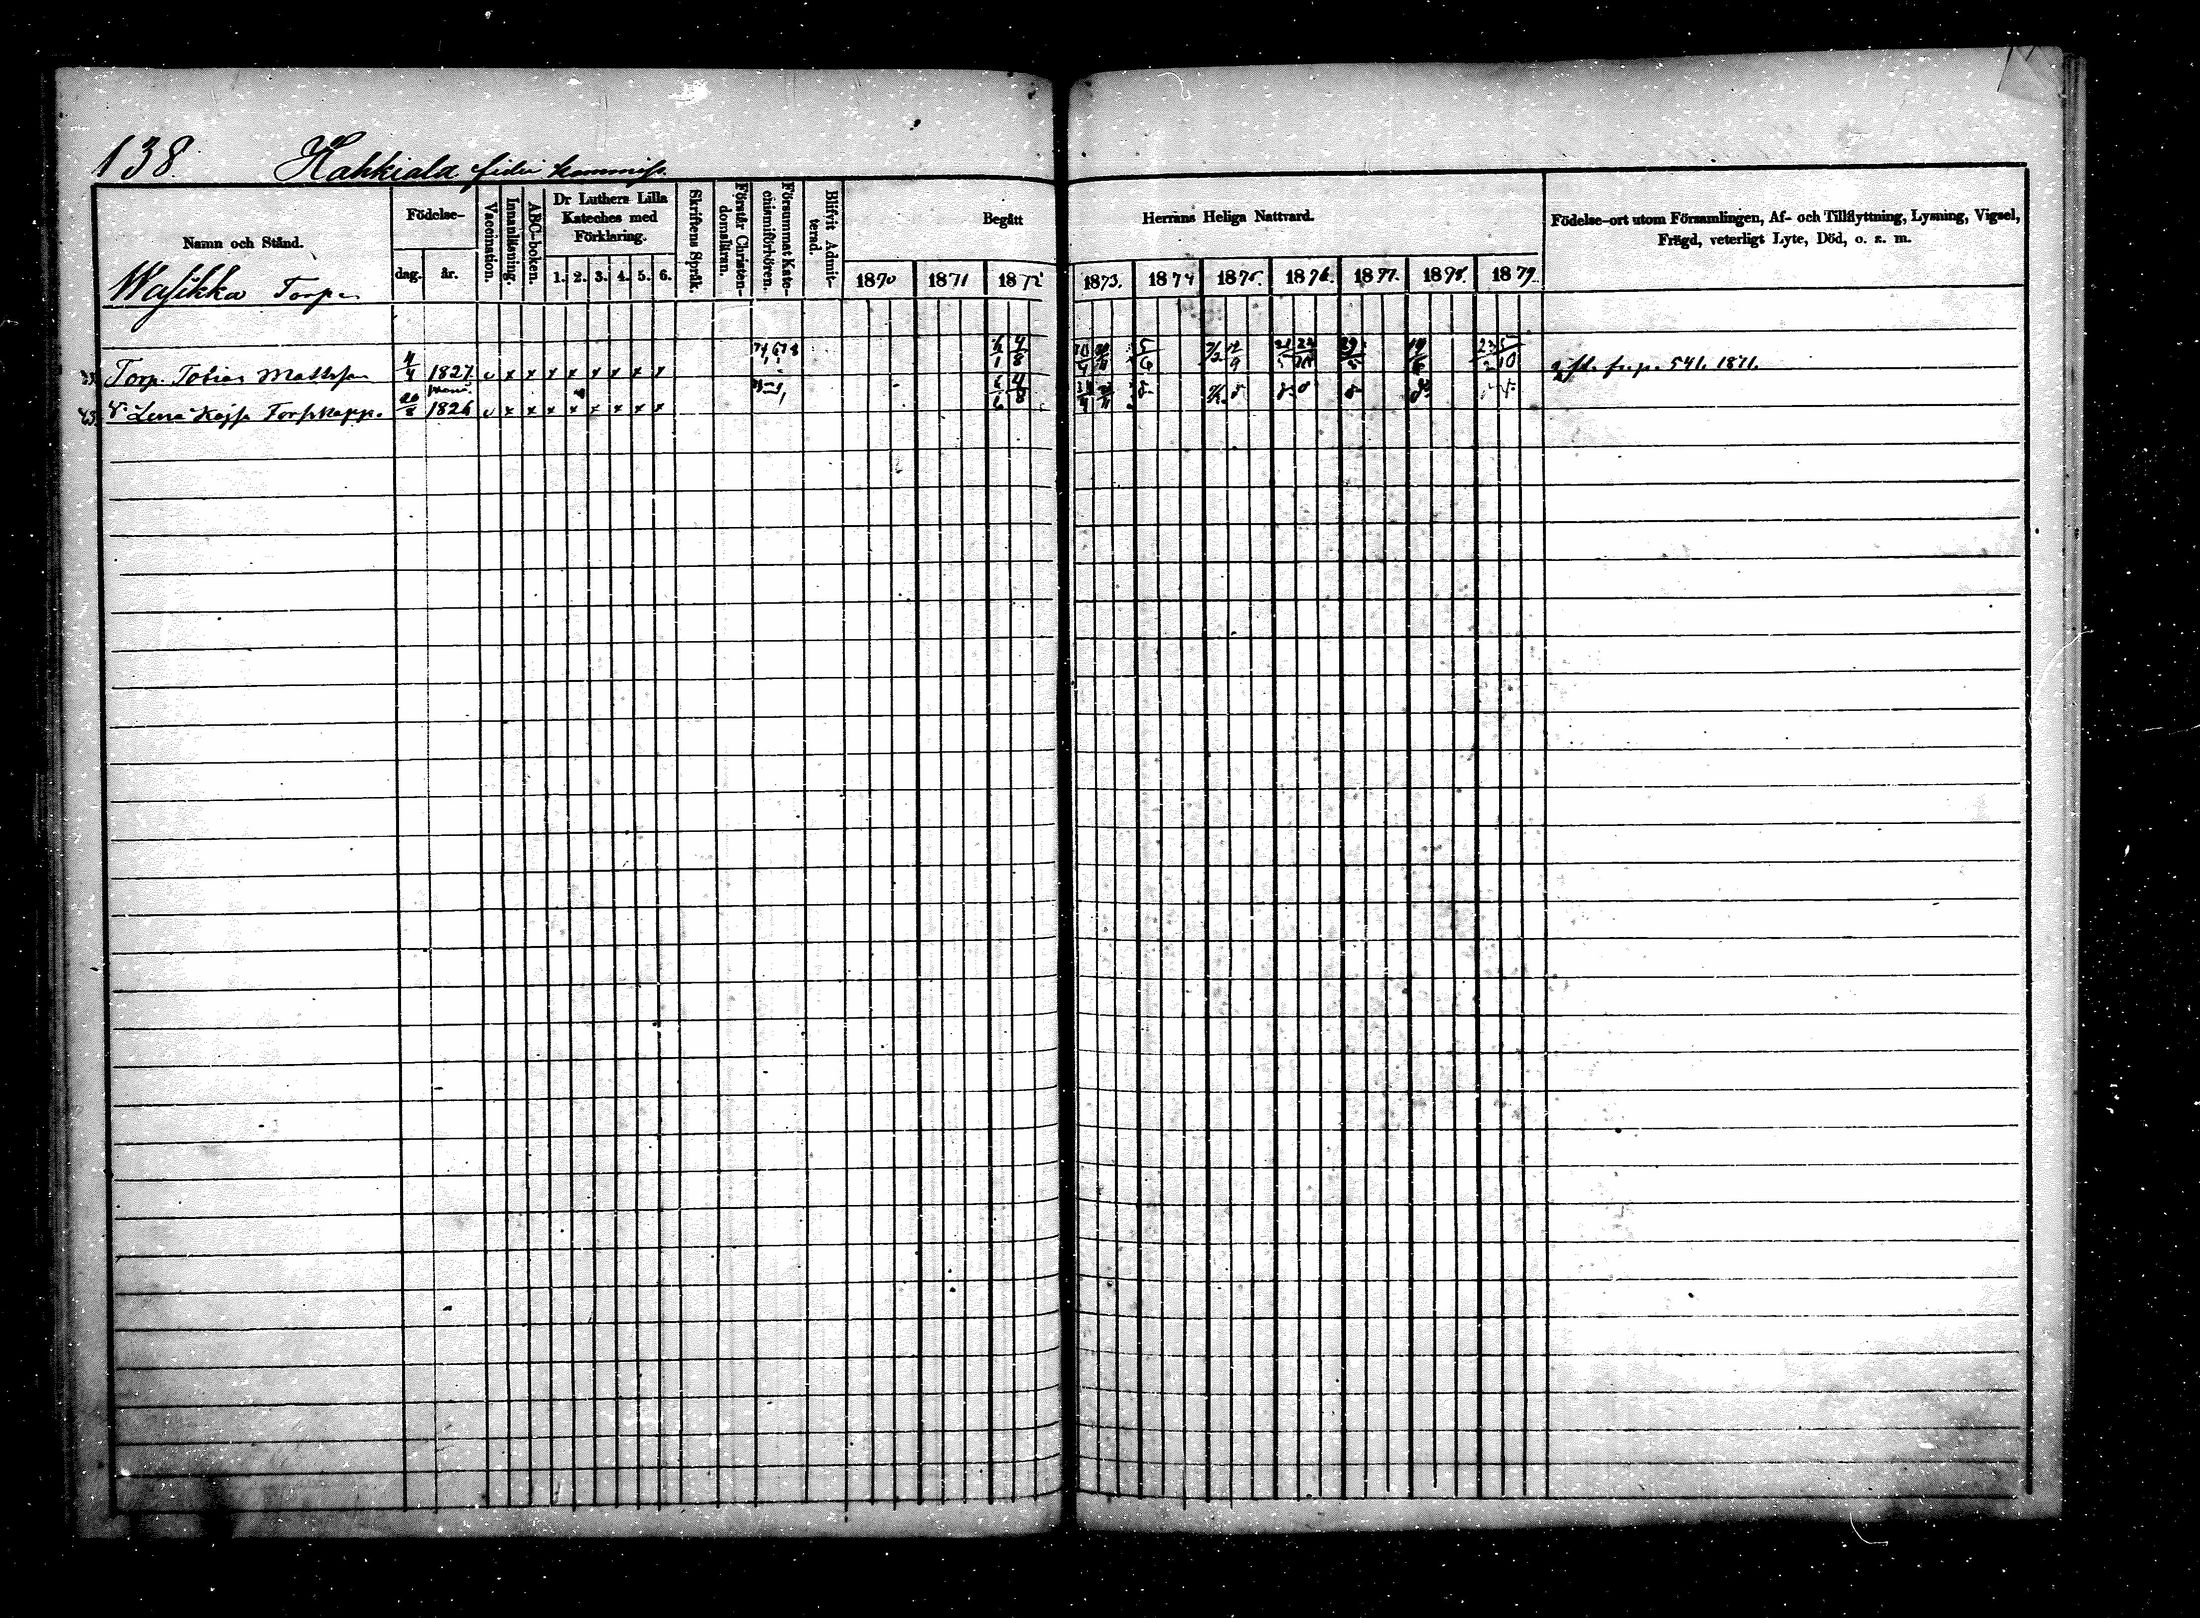 138. Hahkiala fidei kommiss.
Namn och Stånd.
Födelse-
dag. år.
Vaccination.
Innanläsning.
ABC-boken.
Dr Luthers Lilla Kateches med Förklaring.
1. 2. 3. 4. 5. 6.
Skriftens Språk.
Förstår Christen-domsläran.
Försummat Kate-chismiförhören.
Blifvit Admit-terad.
Begått Herrans Heliga Nattvard.
1870 1871 1872 1873. 1874 1875. 1876. 1877. 1878. 1879.
Födelse-ort utom Församlingen, Af- och Tillflyttning, Lysning, Vigsel,
Frägd, veterligt Lyte, Död, o. s. m.
Wasikka Torp
Torp. Tobias Mattsson 4/4 1827. v x x x x x x x x 4/8 5/6 29/5 5/10 fr. p. 541. 1871.
Lena Kajsa 1826 v x x x x x x x x 4/8